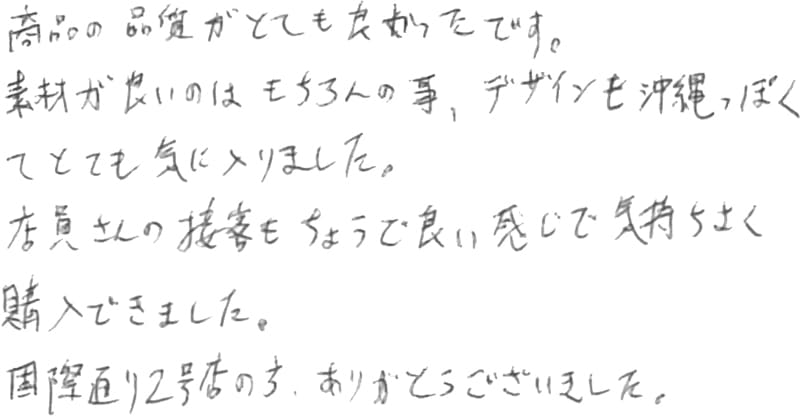 商品の品質がとても良かったです。
素材が良いのはもちろんの事、デザインも沖縄っぽく
てとても気に入りました。
店員さんの接客もちょうで良い感じで気持ちよく
購入できました。
国際通り2号店の方、ありがとうございました。